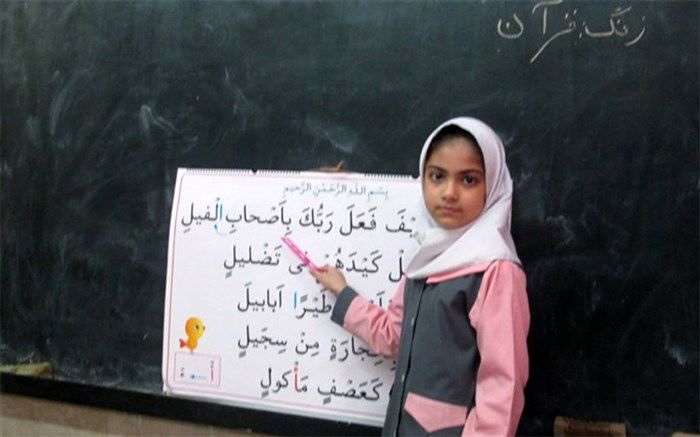 زنگ قرآن
بِسْمِ اللهِ الرَّحْمٰنِ الرَّحيمِ
فَعَلَ رَبُّكَ بِاَصْحابِ الْفيلِ
كَيْدَهُمْ فى تَضْليلٍ
طَيْرًا اَبابيلَ
حِجارَةٍ مِنْ سِجّيلٍ
كَعَصْفٍ مَأْكولٍ